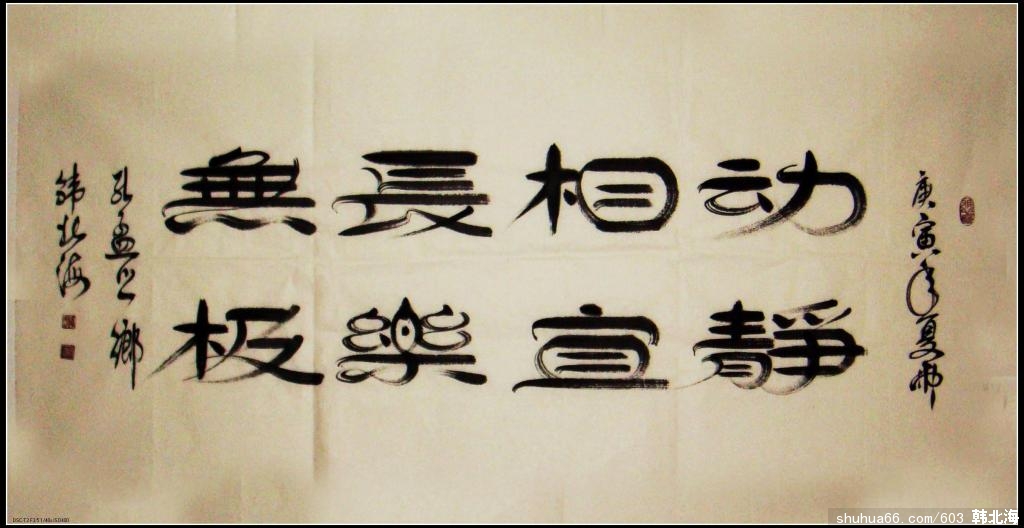 庚寅年夏
动靜
相宜
長樂
無极
孔孟之鄉
韩北海
shuhua66.com/603 韩北海